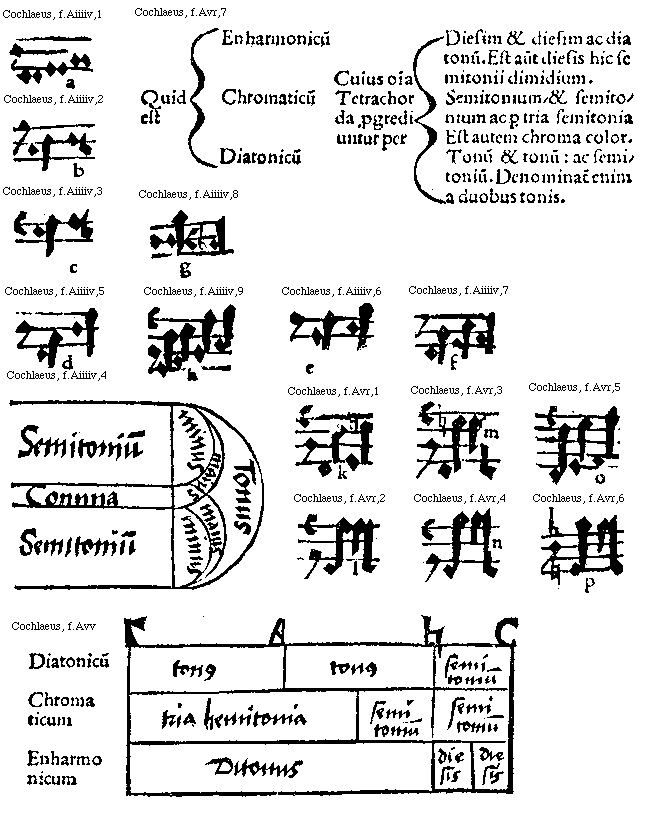 Cochlaeus, f.Aiiiiv,1
a
Cochlaeus, f.Aiiiiv,2
b
Cochlaeus, f.Aiiiiv,3
c
Cochlaeus, f.Avr,7
Quid
est
Enharmonicū
Chromaticū
Diatonicū
Cuius oīa
Tetrachor
da ,pgredi
untur per
Diesim & diesim ac dia
tonū. Est aūt diesis hic se
mitonii dimidium.
Semitonium, & semito/
nium ac p tria semitonia
Est autem chroma color.
Tonū & tonū : ac semi/
toniū. Denominat̄ enim
a duobus tonis.
Cochlaeus, f.Aiiiiv,8
g
Cochlaeus, f.Aiiiiv,5
d
Cochlaeus, f.Aiiiiv,9
h
Cochlaeus, f.Aiiiiv,6
e
Cochlaeus, f.Aiiiiv,7
f
Cochlaeus, f.Aiiiiv,4
Semitoniū
Comma
Semitoniū
minus
maius
maius
minus
Tonus
Cochlaeus, f.Avr,1
k
Cochlaeus, f.Avr,3
m
Cochlaeus, f.Avr,5
o
Cochlaeus, f.Avr,2
l
Cochlaeus, f.Avr,4
n
Cochlaeus, f.Avr,6
p
Cochlaeus, f.Avv
Γ A ♮ C
Diatonicū
tonꝰ
tonꝰ
semi
toniū
Chroma
ticum
tria hemitonia
semi
toniū
semi
toniū
Enharmo
nicum
Ditonus
die
sis
die
sis